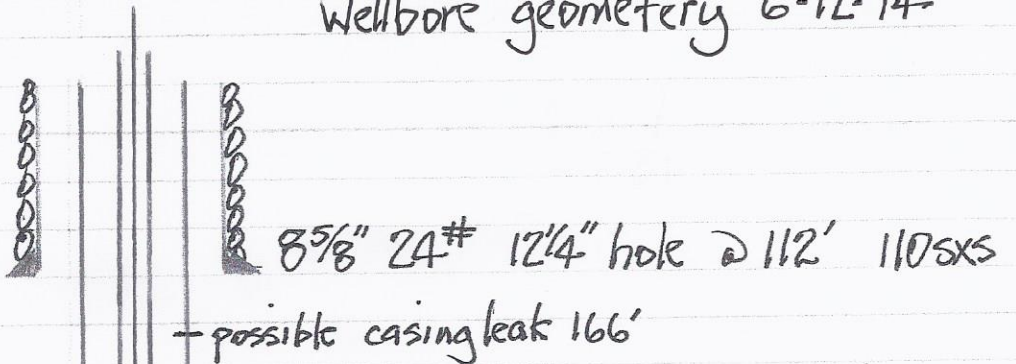 Wellbore geometery 6-12-14
8 5/8" 24# 12 1/4" hole @ 112' 110sxs
possible casing leak 166'